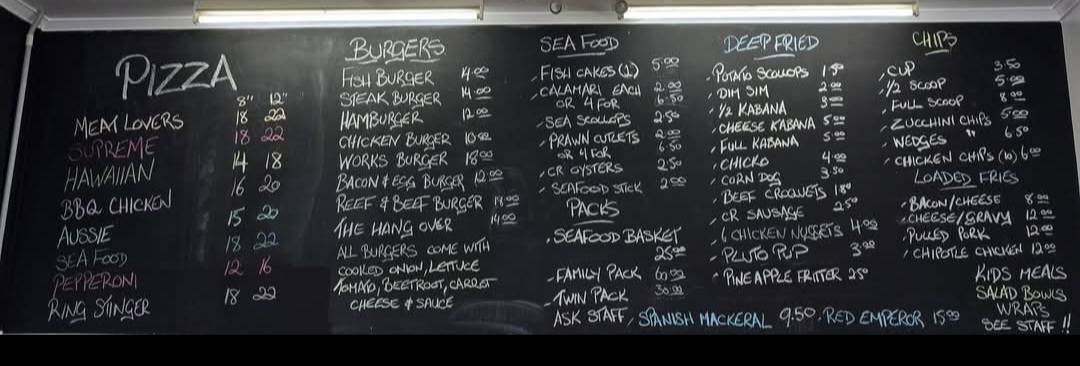 PIZZA
8" 12"
MEAT LOVERS 18 22
SUPREME 18 22
HAWAIIAN 14 18
BBQ CHICKEN 16 20
AUSSIE 15 20
SEA FOOD 18 22
PEPPERONI 12 16
RING STINGER 18 22
BURGERS
FISH BURGER 14.00
STEAK BURGER 14.00
HAMBURGER 12.00
CHICKEN BURGER 10.50
WORKS BURGER 18.00
BACON & EGG BURGER 12.00
REEF & BEEF BURGER
THE HANG OVER 14.00
ALL BURGERS COME WITH
COOKED ONION, LETTUCE
TOMATO, BEETROOT, CARROT
CHEESE & SAUCE
SEA FOOD
FISH CAKES (1) 5.00
CALAMARI EACH 2.00
OR 4 FOR 6.50
SEA SCOLLOPS 2.50
PRAWN CUTLETS 2.00
OR 4 FOR 6.50
CR OYSTERS 2.50
SEAFOOD STICK 2.00
PACKS
SEAFOOD BASKET
25.00
FAMILY PACK 60.00
TWIN PACK 30.00
ASK STAFF, SPANISH MACKERAL 9.50. RED EMPEROR 15.00
DEEP FRIED
POTATO SCOLLOPS 1.50
DIM SIM 2.00
1/2 KABANA 3.00
CHEESE KABANA 5.00
FULL KABANA 5.00
CHICKO 4.00
CORN DOG 3.50
BEEF CROQUETS 1.80
CR SAUSAGE 2.50
6 CHICKEN NUGGETS 4.00
PLUTO PUP 3.00
PINEAPPLE FRITTER 2.50
CHIPS
CUP 3.50
1/2 SCOOP 5.00
FULL SCOOP 8.00
ZUCCHINI CHIPS 5.00
WEDGES " 6.50
CHICKEN CHIPS (10) 6.00
LOADED FRIES
BACON/CHEESE 8.00
CHEESE/GRAVY 12.00
PULLED PORK 12.00
CHIPOTLE CHICKEN 12.00
KIDS MEALS
SALAD BOWLS
WRAPS
SEE STAFF !!